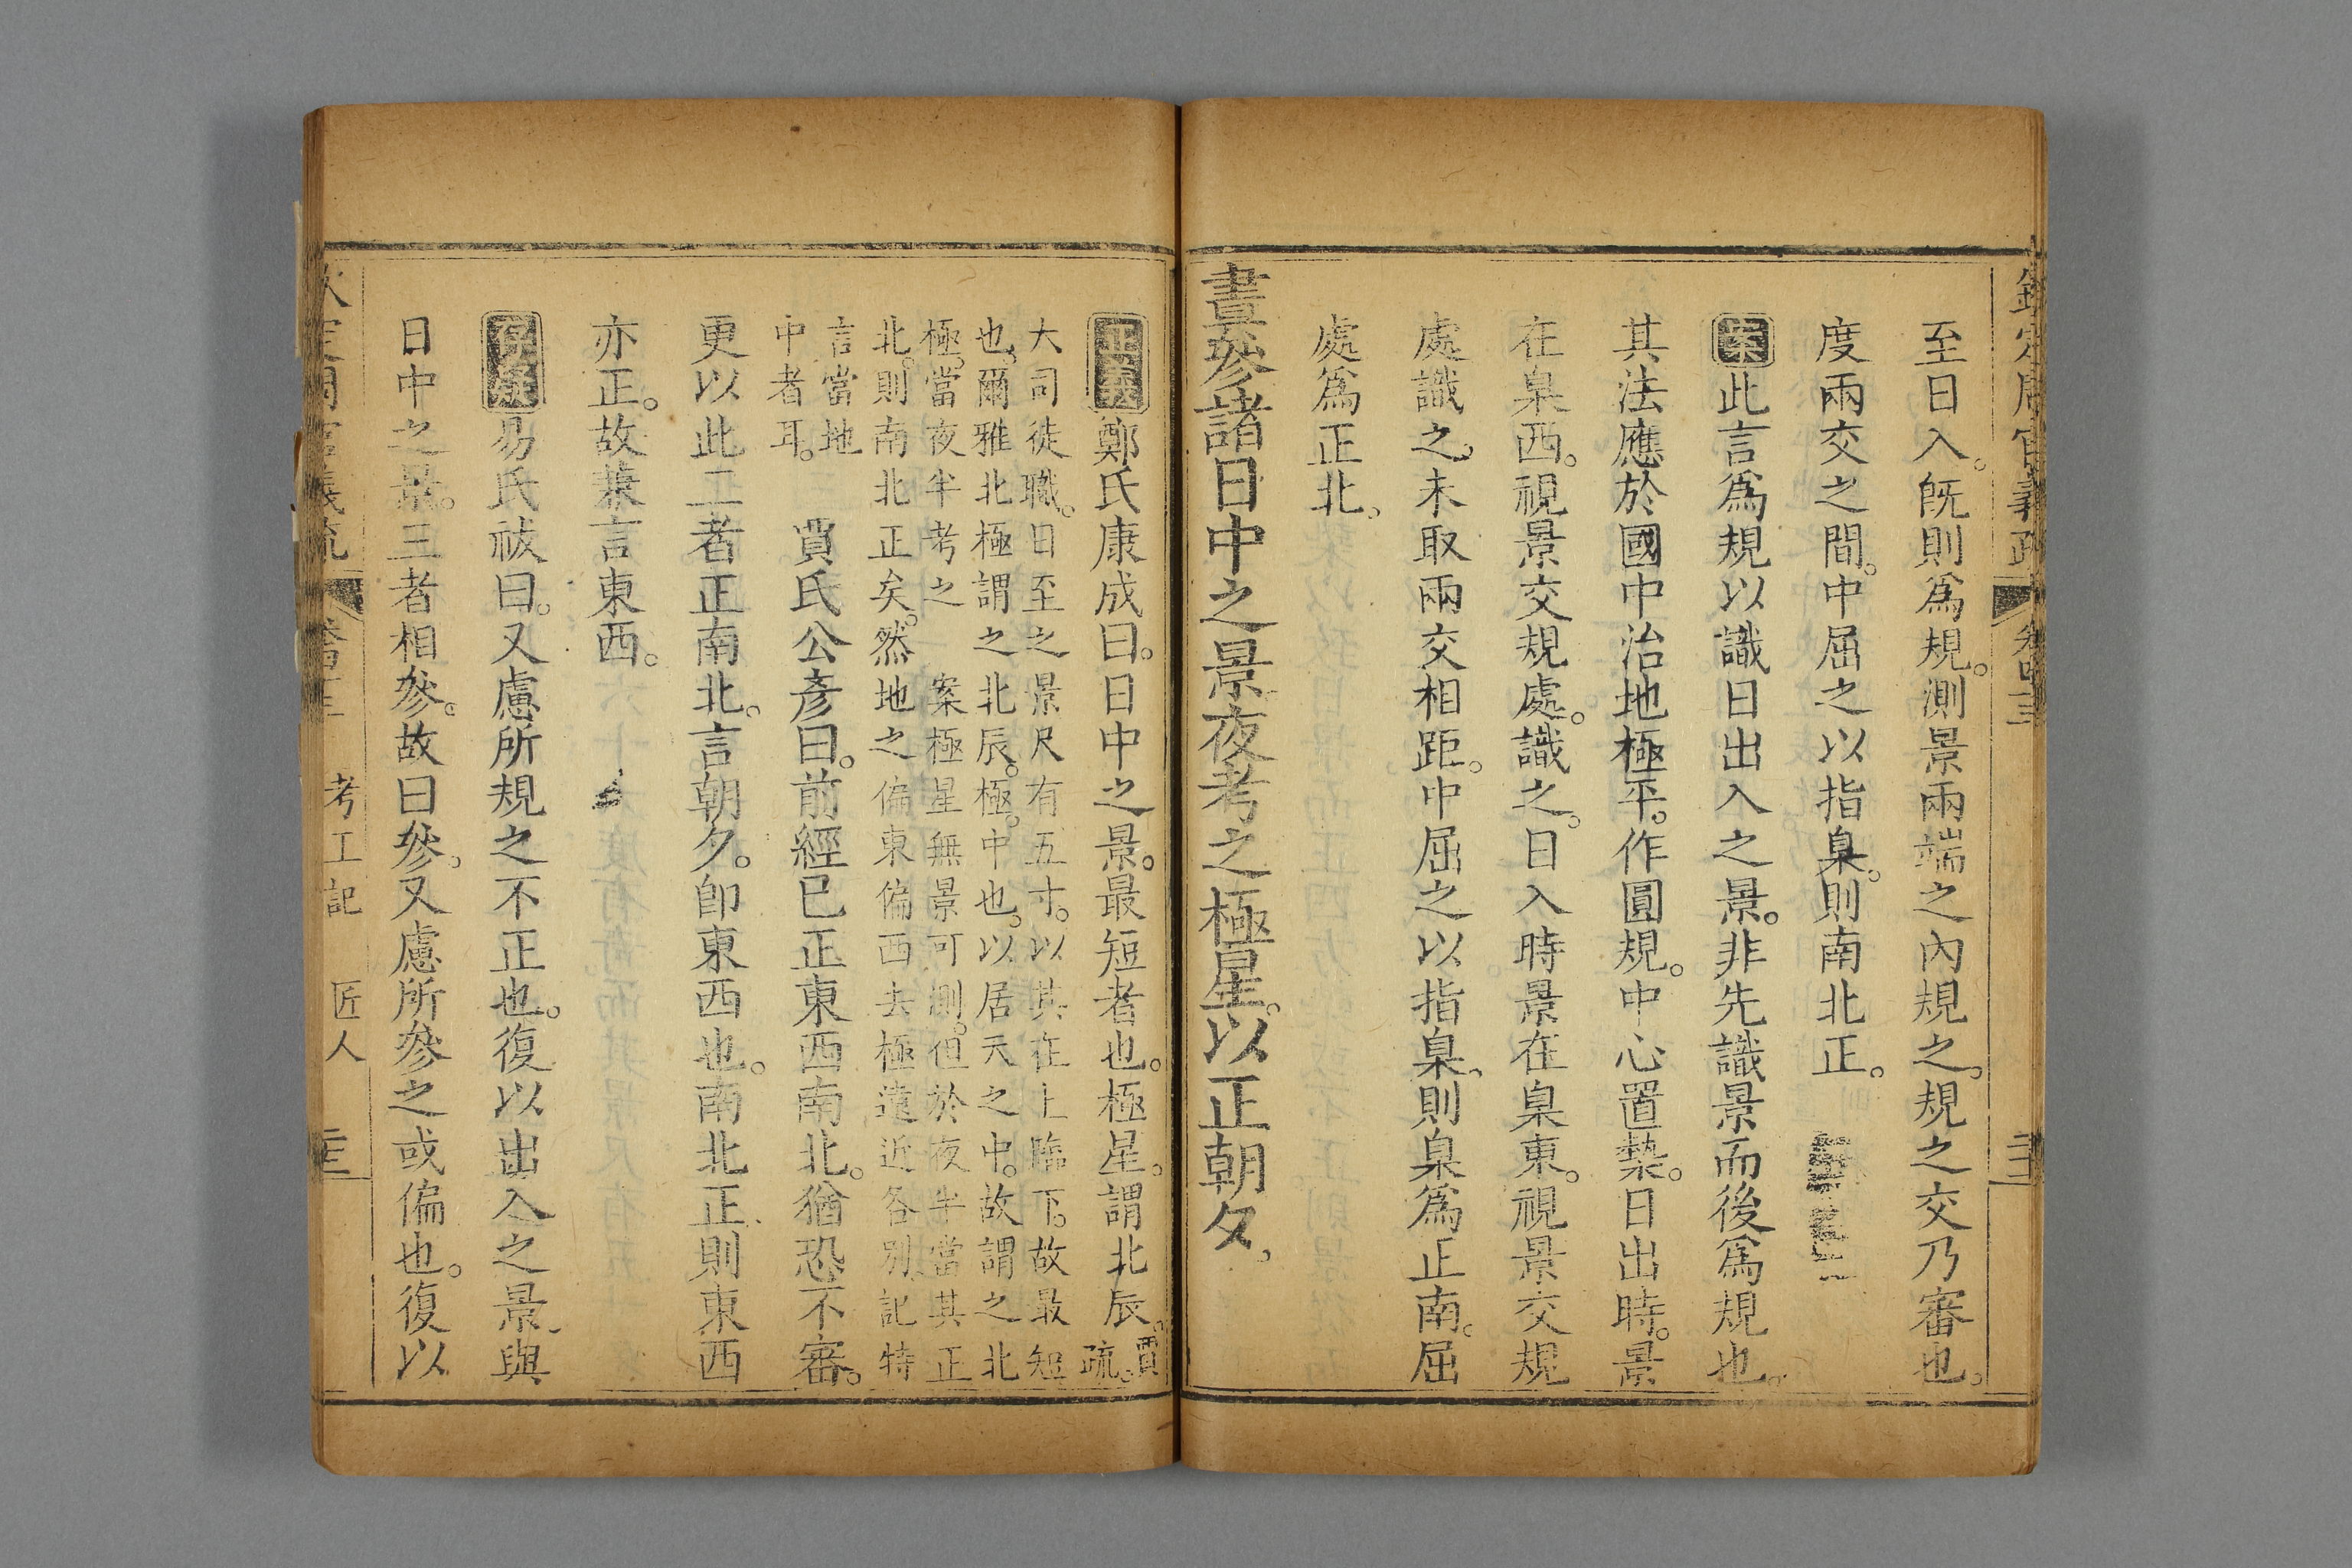 欽定周官義疏 卷四十三
至日入。旣則爲規。測景兩端之內規之。規之交乃審也。
度兩交之間。中屈之以指臬。則南北正。
案此言爲規以識日出入之景。非先識景而後爲規也。
其法應於國中治地極平。作圓規。中心置槷。日出時。景
在臬西。視景交規處。識之。日入時景在臬東。視景交規
處識之。末取兩交相距。中屈之以指臬。則臬爲正南。屈
處爲正北。
晝參諸日中之景夜考之極星。以正朝夕。
正義鄭氏康成曰。日中之景。最短者也。極星。謂北辰。賈疏。
大司徒職。日至之景尺有五寸。以其在上臨下。故最短
也。爾雅北極謂之北辰。極。中也。以居天之中。故謂之北
極。當夜半考之 案極星無景可測。但於夜半當其正
北。則南北正矣。然地之偏東偏西去極遠近各別。記特
言當地
中者耳。 賈氏公彥曰。前經已正東西南北。猶恐不審。
更以此二者正南北。言朝夕。卽東西也。南北正則東西
亦正。故兼言東西。
易氏祓曰。又慮所規之不正也。復以出入之景與
日中之景。三者相參。故曰參。又慮所參之或偏也。復以
考工記 匠人